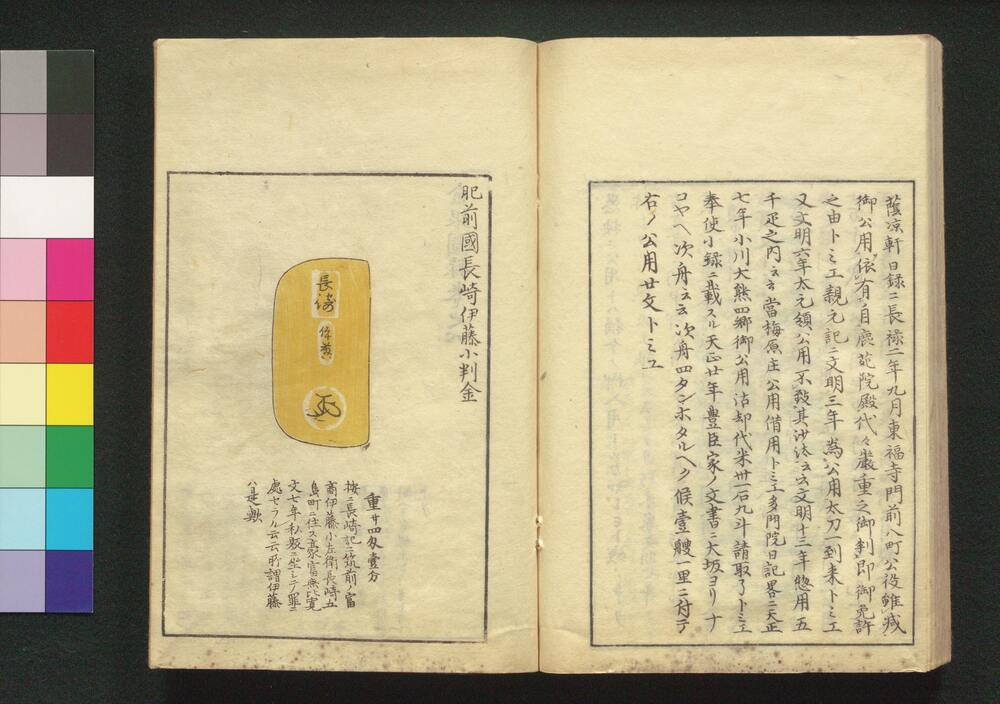 蔭凉軒日録ニ長禄二年九月東福寺門前八町公役雖咸
御公用依有自鹿苑院殿代々嚴重之御判即御免許
之由トミエ親元記ニ文明三年為公用太刀一到来トミエ
又文明六年太元領公用不致其沙汰云云文明十三年惣用五
千疋之内云云當梅原庄公用借用トミエ多門院日記畧ニ天正
七年小川大熊四郷御公用沽却代米卅一石九斗請取了トミエ
奉使小録ニ載スル天正廿年豊臣家ノ文書ニ大坂ヨリナ
コヤヘ次舟云云次舟四タンホタルヘク候壹艘一里ニ付テ
右ノ公用廿文トミユ
肥前國長崎伊藤小判金
長崎
伊藤
重廿四匁壹分
按ニ長崎記ニ筑前ノ富
商伊藤小左衛長崎五
島町ニ住ス其家富無比寛
文七年私販ニ坐シテ罪ニ
處セラル云云所謂伊藤
ハ是歟